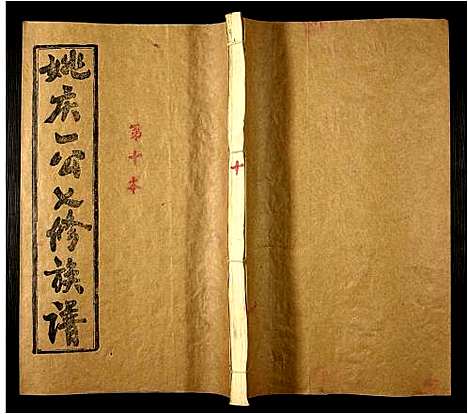 姚庆一公七修族谱
第十本
十